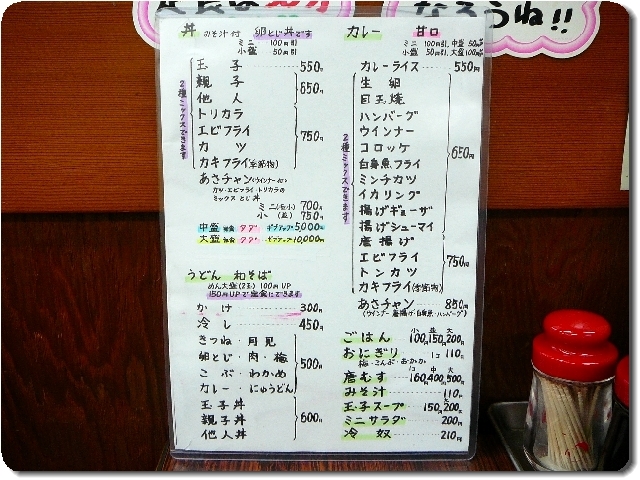 なろうね!!
丼 みそ汁付 卵とじ丼です
ミニ 100円引
小盛 50円引
玉子 550円
親子
他人 650円
トリカラ
エビフライ
カツ 750円
カキフライ(季節物)
2種ミックスできます
あさチャン(ウインナー
カツ・エビフライ・トリカラの
ミックス とじ丼
ミニ 700円
小 750円
中盛 完食 タダ ギブアップ 5,000円
大盛 完食 タダ ギブアップ 10,000円
うどん 和そば
めん大盛(2玉) 100円UP
150円UPで定食にできます
かけ 300円
冷し 450円
きつね・月見
卵とじ・肉・梅
こぶ・わかめ 500円
カレー・にゅうどん
玉子丼
親子丼 600円
他人丼
カレー 甘口
ミニ 100円引、中盛 50円
小盛 50円引、大盛 100円
カレーライス 550円
生卵
目玉焼
ハンバーグ
ウインナー
コロッケ 650円
白身魚フライ
ミンチカツ
イカリング
揚げギョーザ
揚げシューマイ
2種ミックスできます
唐揚げ
エビフライ 750円
トンカツ
カキフライ(季節物)
あさチャン 850円
(ウインナー・唐揚げ・白身魚・ハンバーグ)
小 並 大
ごはん 100円 150円 200円
おにぎり 1コ 110円
梅・こんぶ・おかか
1コ 中 大
唐むす 160円 400円 500円
みそ汁 110円
玉子スープ 150円 200円
ミニサラダ 200円
冷奴 210円